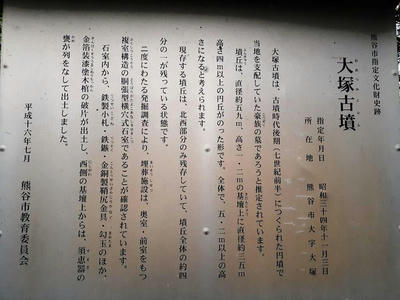 熊谷市指定文化財史跡
大塚古墳
指定年月日 昭和三十四年十一月三日
所在地 熊谷市大字大塚
大塚古墳は、古墳時代後期(七世紀前半)につくられた円墳で
当地を支配していた豪族の墓であろうと推定されています。
墳丘は、直径約五九m、高さ一・二mの基壇上に直径約三五m
高さ四m以上の円丘がのった形です。全体で、五・二m以上の高
さになると考えられます。
現存する墳丘は、北西部分のみ残存していて、墳丘全体の約四
分の一が残っている状態です。
二度にわたる発掘調査により、埋葬施設は、奥室・前室をもつ
複室構造の胴張型横穴式石室であることが確認されています。
石室内から、鉄製小札・鉄鏃・金銅製鞘尻金具・勾玉のほか、
金箔装漆塗木棺の破片が出土し、西側の基壇上からは、須恵器の
甕が列をなして出土しました。
平成十六年七月
熊谷市教育委員会